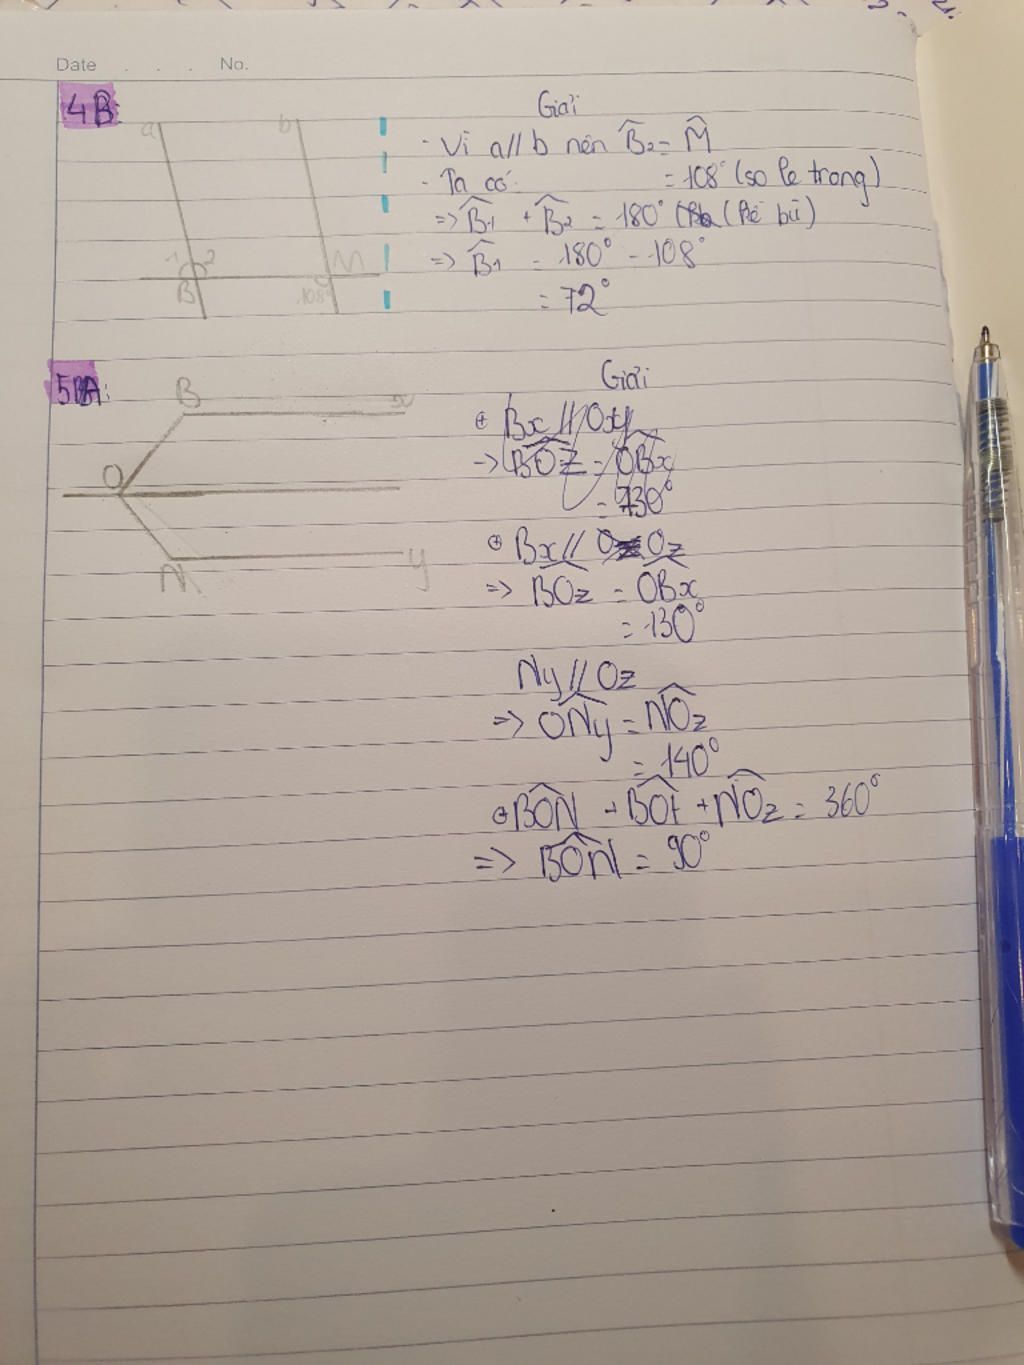 Date . . . No.
4B:
Giải
a
b
1
2
B
M
108°
- Vì a // b nên B̂₂ = M̂
- Ta có: = 108° (so le trong)
=> B̂₁ + B̂₂ = 180° (kề bù)
=> B̂₁ = 180° - 108°
= 72°
5A:
Giải
B
x
O
N
y
+ Bx // Oxy
-> BOZ = OBx
= 130°
+ Bx // Oz
=> BOz = OBx
= 130°
Ny // Oz
=> ONy = NOz
= 140°
+ BON + BOt + NOz = 360°
=> BON = 90°